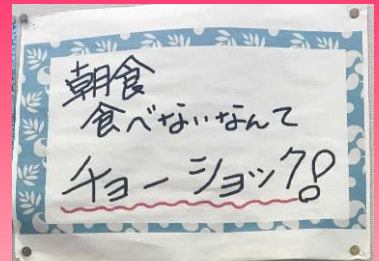 朝食
食べないなんて
チョーショック!